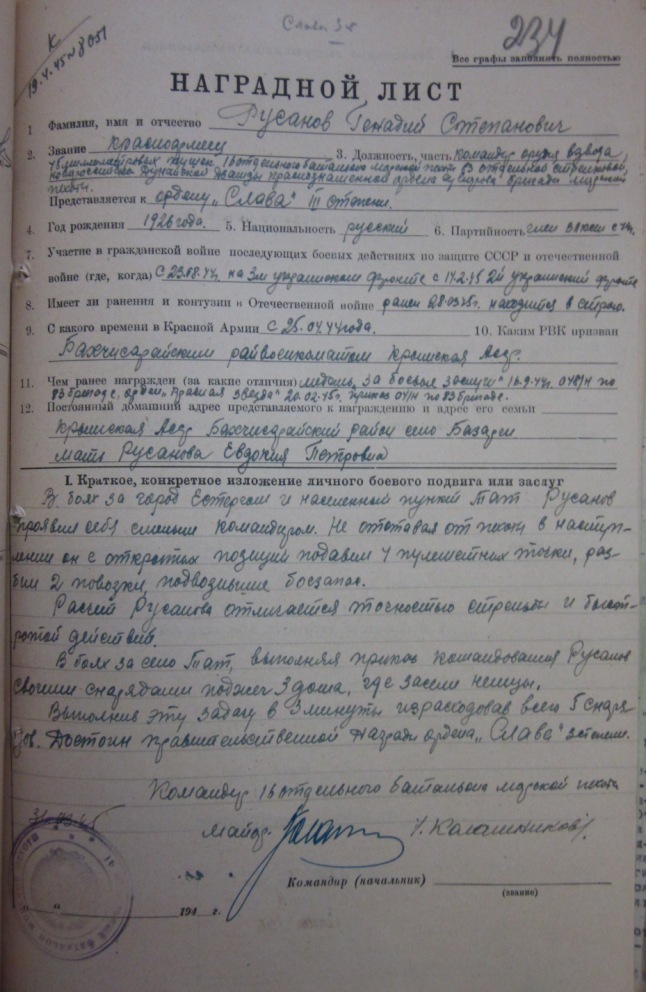 Слава 3 ст
234
К
19.4.45 № 8051
Все графы заполнить полностью
НАГРАДНОЙ ЛИСТ
1 Фамилия, имя и отчество Русанов Генадий Степанович
2. Звание красноармеец 3. Должность, часть командир орудия взвода,
45 миллиметровых пушек, 16 отдельного батальона морской пехоты 83 отдельной стрелковой,
новороссийской дунайской дважды краснознаменной ордена Суворова бригады морской
пехоты.
Представляется к ордену „Слава" III степени.
4. Год рождения 1926 года. 5. Национальность русский 6. Партийность член ВЛКСМ с
7. Участие в гражданской войне последующих боевых действиях по защите СССР и отечественной
войне (где, когда) С 23.08.44г. на 3м украинском фронте с 14.2.45 2й украинский фронте
8. Имеет ли ранения и контузии в Отечественной войне ранен 28.03.45г. находится в строю.
9. С какого времени в Красной Армии с 25.04.44 года. 10. Каким РВК призван
Бахчисарайским райвоенкоматом Крымская Асср.
11. Чем ранее награжден (за какие отличия) медаль „за боевые заслуги" 16.9.44г. 048/н по
83 бригаде, орден „Красная звезда" 20.02.45г. приказ 04/н по 83 бригаде.
12. Постоянный домашний адрес представляемого к награждению и адрес его семьи
Крымская Асср Бахчисарайский район село Базарги
мать Русанова Евдокия Петровна
I. Краткое, конкретное изложение личного боевого подвига или заслуг
В боях за город Естергом и населенный пункт Тат Русанов
проявил себя смелым командиром. Не отставая от пехоты в наступ-
лении он с открытых позиций подавил 4 пулеметных точки, раз-
бил 2 повозки подвозившие боезапас.
Расчет Русанова отличается точностью стрельбы и быст-
ротой действий.
В боях за село Тат, выполняя приказ командования Русанов
своими снарядами поджег 3 дома, где засели немцы.
Выполнил эту задачу в 3 минуты израсходовав всего 5 снаря-
дов. Достоин правительственной награды ордена „Слава" 3 степени.
Командир 16 отдельного батальона морской пехоты
31.03.45
майор /Калашников/.
Командир (начальник)
(звание)
„ " 194 г.